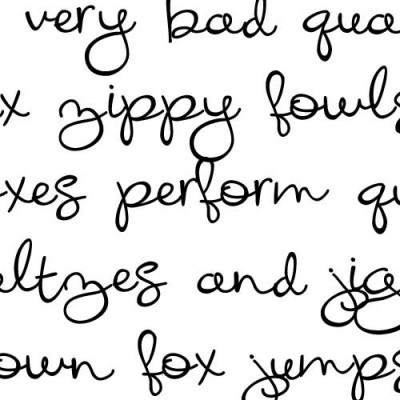 very bad qua
x zippy fowls
xes perform qu
altzes and jig
own fox jumps